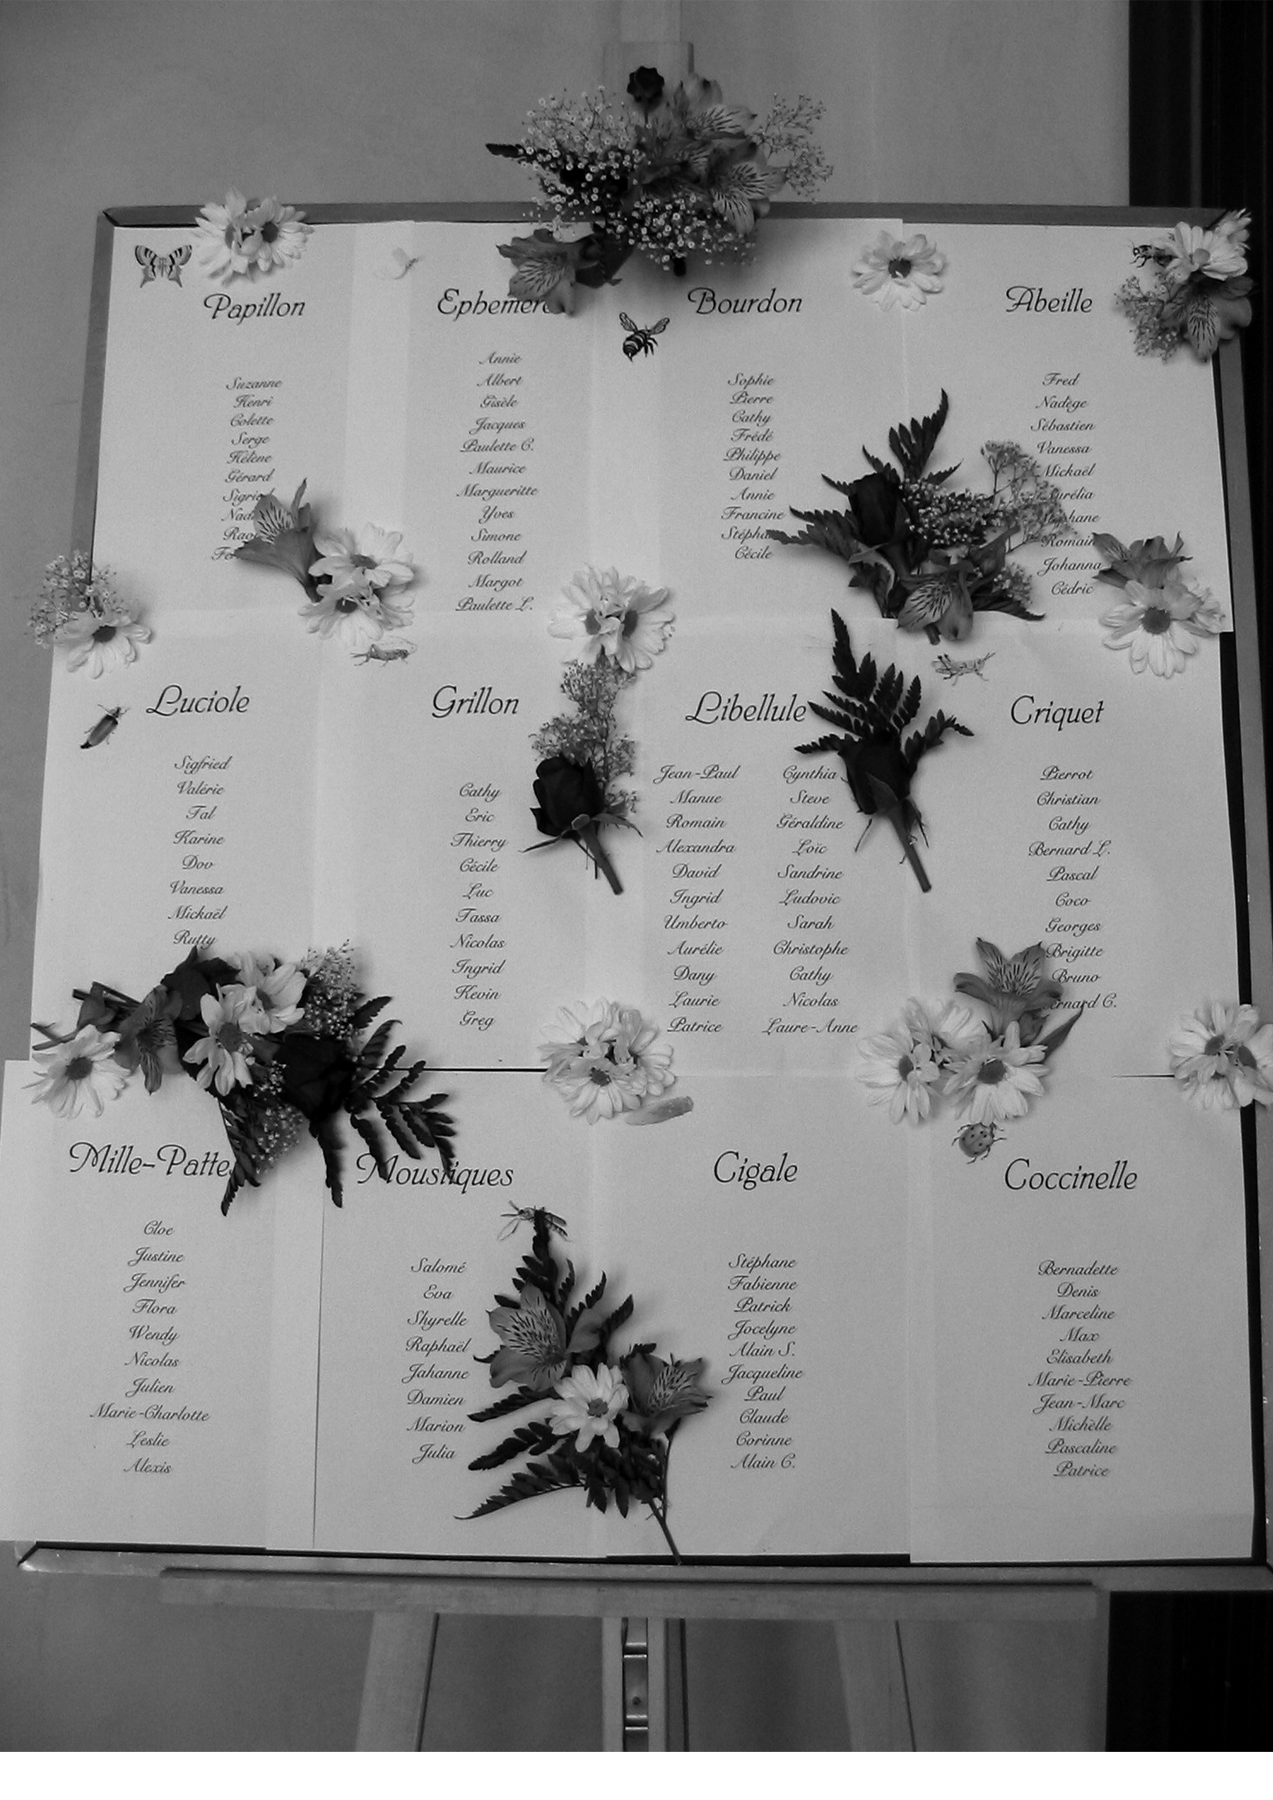 Papillon
Suzanne
Henri
Colette
Serge
Hélène
Gérard
Ephemère
Annie
Albert
Gisèle
Jacques
Paulette C.
Maurice
Margueritte
Yves
Simone
Rolland
Margot
Paulette L.
Bourdon
Sophie
Pierre
Cathy
Frédé
Philippe
Daniel
Annie
Francine
Cécile
Abeille
Fred
Nadège
Sébastien
Vanessa
Mickaël
Romain
Johanna
Cédric
Luciole
Sigfried
Valérie
Tal
Karine
Dov
Vanessa
Mickaël
Rutty
Grillon
Cathy
Eric
Thierry
Cécile
Luc
Tassa
Nicolas
Ingrid
Kevin
Greg
Libellule
Jean-Paul Cynthia
Manue Steve
Romain Géraldine
Alexandra Loïc
David Sandrine
Ingrid Ludovic
Umberto Sarah
Aurélie Christophe
Dany Cathy
Laurie Nicolas
Patrice Laure-Anne
Criquet
Pierrot
Christian
Cathy
Bernard L.
Pascal
Coco
Georges
Brigitte
Bruno
Bernard C.
Mille-Pattes
Cloe
Justine
Jennifer
Flora
Wendy
Nicolas
Julien
Marie-Charlotte
Leslie
Alexis
Moustiques
Salomé
Eva
Shyrelle
Raphaël
Jahanne
Damien
Marion
Julia
Cigale
Stéphane
Fabienne
Patrick
Jocelyne
Alain S.
Jacqueline
Paul
Claude
Corinne
Alain C.
Coccinelle
Bernadette
Denis
Marceline
Max
Elisabeth
Marie-Pierre
Jean-Marc
Michèlle
Pascaline
Patrice